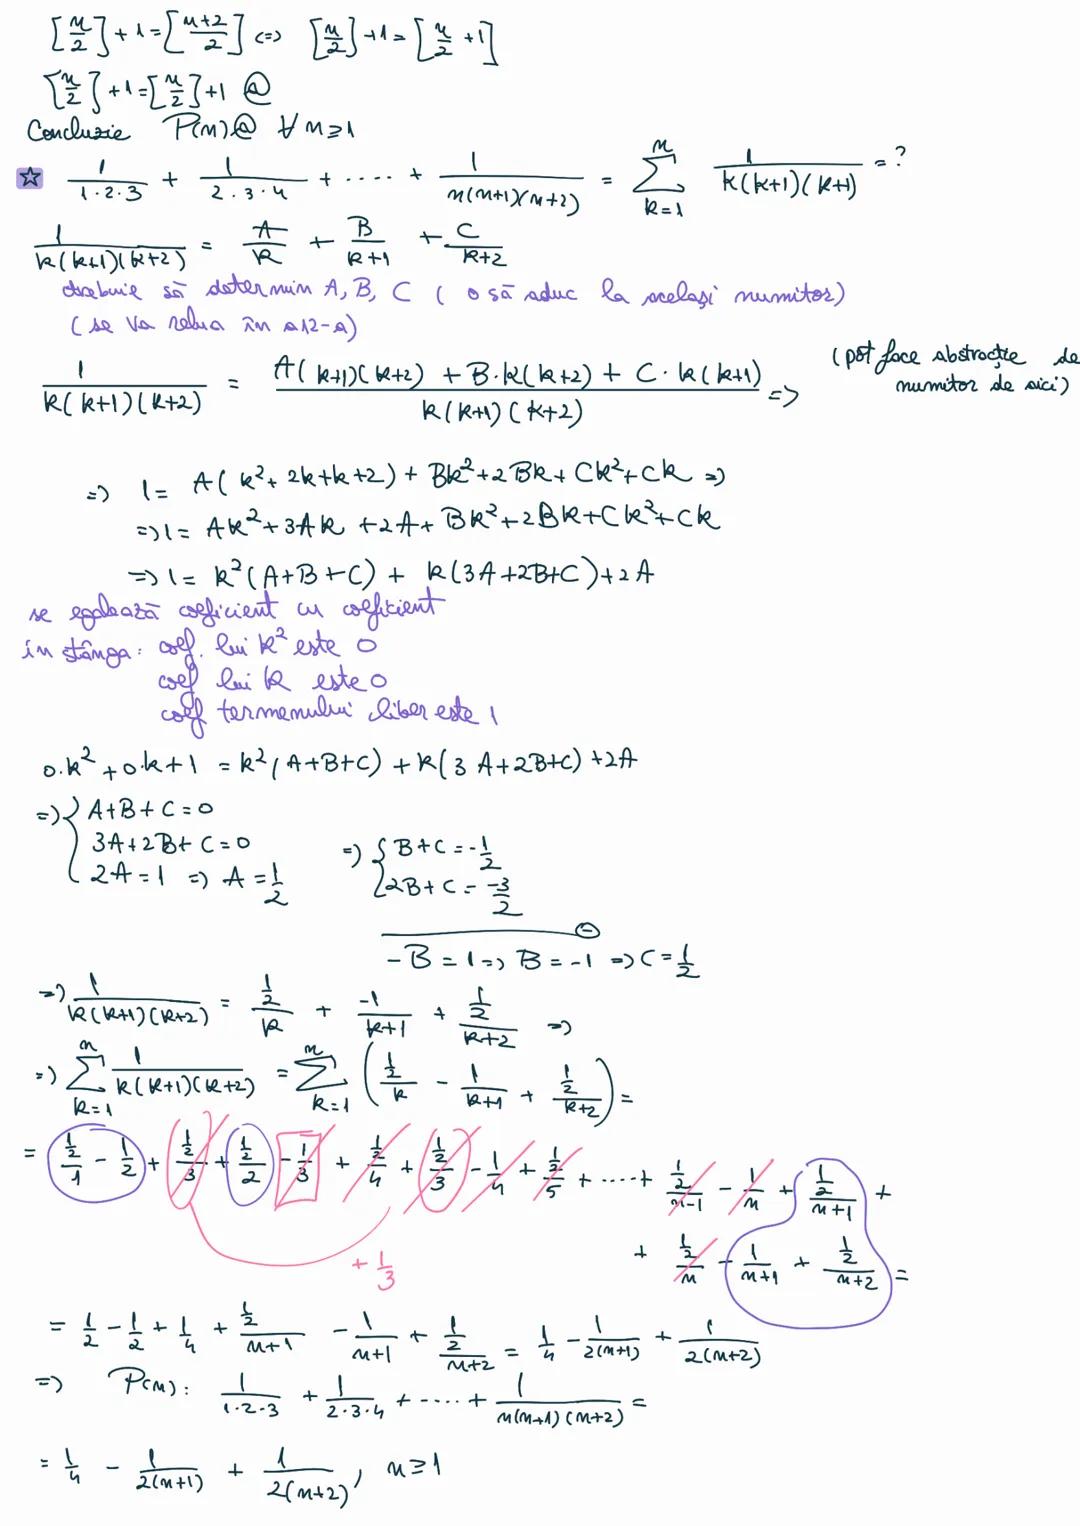 [n/2]+1=[(n+2)/2] <=> [n/2]+1=[n/2 +1]
[n/2]+1=[n/2]+1 Ⓐ
Concluzie P(n) Ⓐ ∀ n≥1
☆ 1/(1·2·3) + 1/(2·3·4) + .... + 1/(n(n+1)(n+2)) = ∑_{k=1}^{n} 1/(k(k+1)(k+1)) = ?
1/(k(k+1)(k+2)) = A/k + B/(k+1) + C/(k+2)
trebuie să determin A, B, C ( o să aduc la același numitor)
(se va relua în a 12-a)
1/(k(k+1)(k+2)) = (A(k+1)(k+2) + B·k(k+2) + C·k(k+1))/(k(k+1)(k+2)) => (pot face abstracție de numitor de aici)
=> 1= A(k²+2k+k+2)+Bk²+2Bk+Ck²+Ck =>
=> 1= Ak²+3Ak+2A+Bk²+2Bk+Ck²+Ck
=> 1= k²(A+B+C) + k(3A+2B+C)+2A
se egalează coeficient cu coeficient
în stânga: coef. lui k² este 0
coef lui k este 0
coef termenului liber este 1
0·k²+0·k+1 = k²(A+B+C)+k(3A+2B+C)+2A
=> { A+B+C=0
3A+2B+C=0 => { B+C=-1/2
2A=1 => A=1/2 2B+C=-3/2
⊖
-B=1 => B=-1 => C=1/2
=> 1/(k(k+1)(k+2)) = (1/2)/k + (-1)/(k+1) + (1/2)/(k+2) =>
=> ∑_{k=1}^{n} 1/(k(k+1)(k+2)) = ∑_{k=1}^{n} ((1/2)/k - 1/(k+1) + (1/2)/(k+2)) =
= (1/2)/1 - 1/2 + (1/2)/3 + (1/2)/2 - 1/3 + (1/2)/4 + (1/2)/3 - 1/4 + (1/2)/5 + ....+ (1/2)/(n-1) - 1/n + (1/2)/(n+1) +
+ 1/3
+ (1/2)/n - 1/(n+1) + (1/2)/(n+2) =
= 1/2 - 1/2 + 1/4 + (1/2)/(n+1) - 1/(n+1) + (1/2)/(n+2) = 1/4 - 1/(2(n+1)) + 1/(2(n+2))
=> P(n): 1/(1·2·3) + 1/(2·3·4) + .... + 1/(n(n+1)(n+2)) =
= 1/4 - 1/(2(n+1)) + 1/(2(n+2)), n≥1